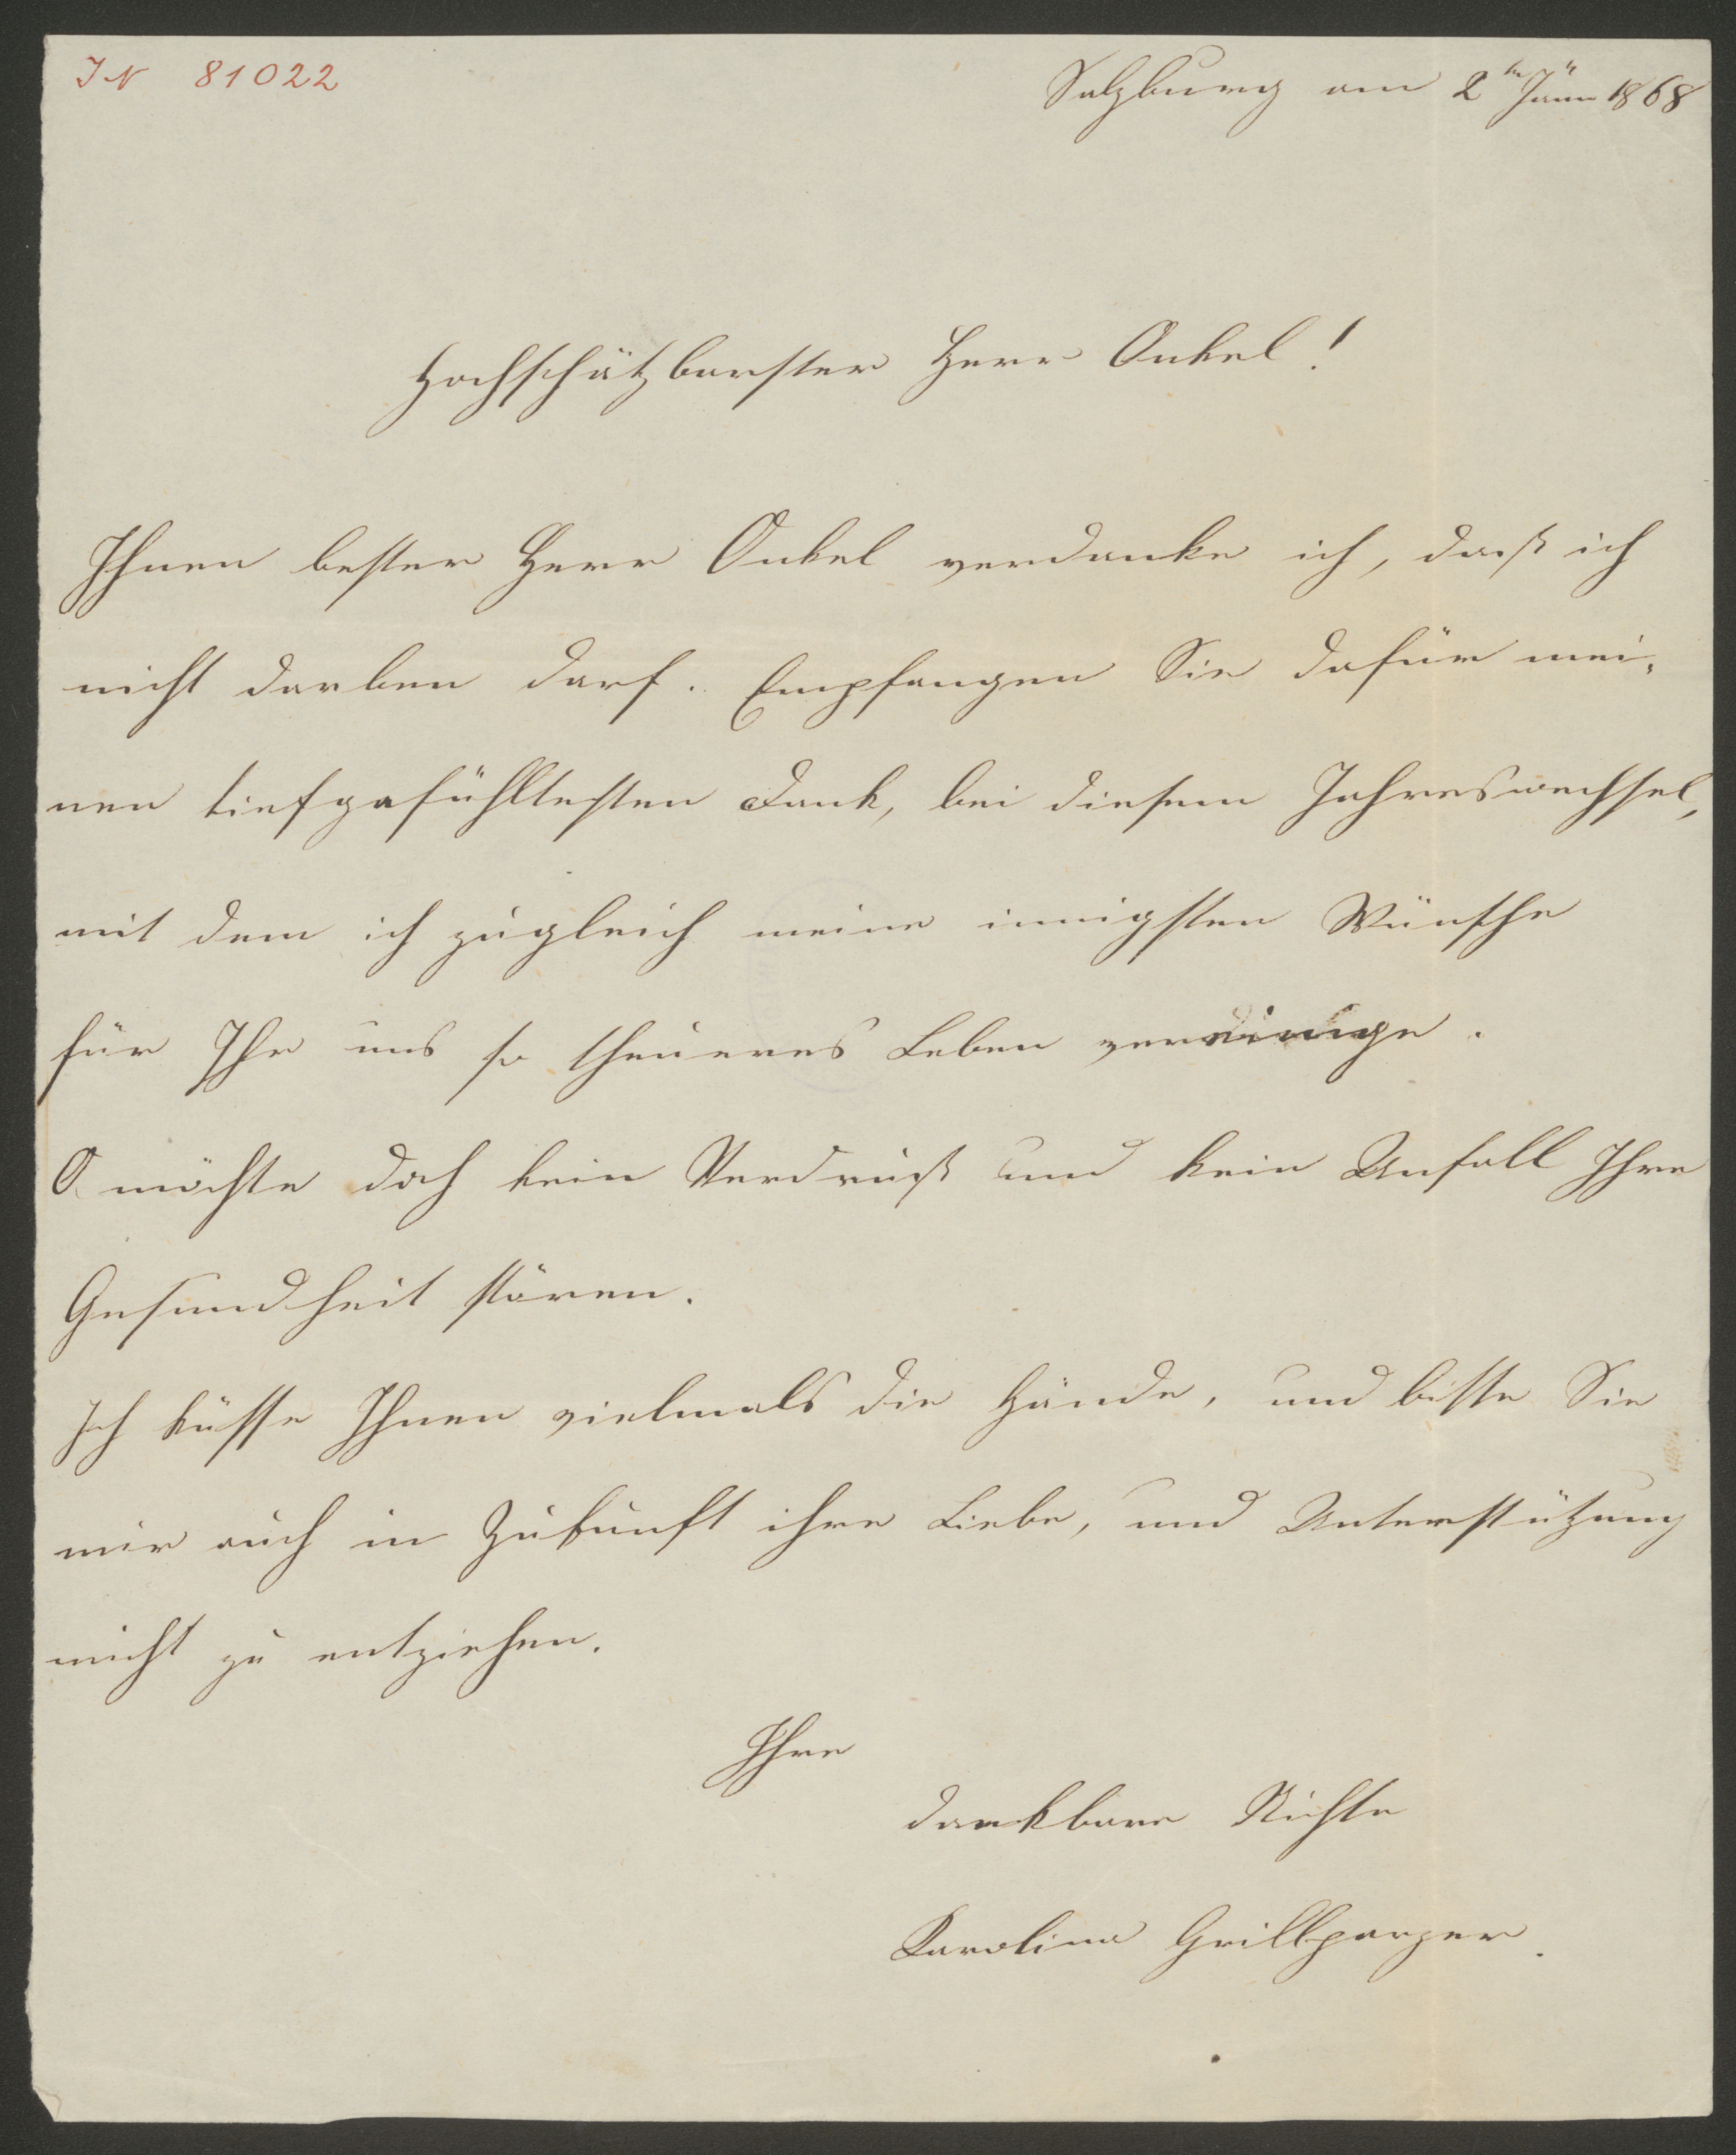 IN 81022
Salzburg am 2ten Jänn 1868
Hochschätzbarster Herr Onkel!
Ihnen bester Herr Onkel verdanke ich, daß ich
nicht darben darf. Empfangen Sie dafür mei-
nen tiefgefühltesten Dank, bei diesem Jahreswechsel,
mit dem ich zugleich meine innigsten Wünsche
für Ihr uns so theueres Leben vereinige.
O möchte doch kein Verdruß und kein Unfall Ihre
Gesundheit stören.
Ich küsse Ihnen vielmals die Hände, und bitte Sie
mir auch in Zukunft ihre Liebe, und Unterstützung
nicht zu entziehen.
Ihre
dankbare Nichte
Karolina Grillparzer.